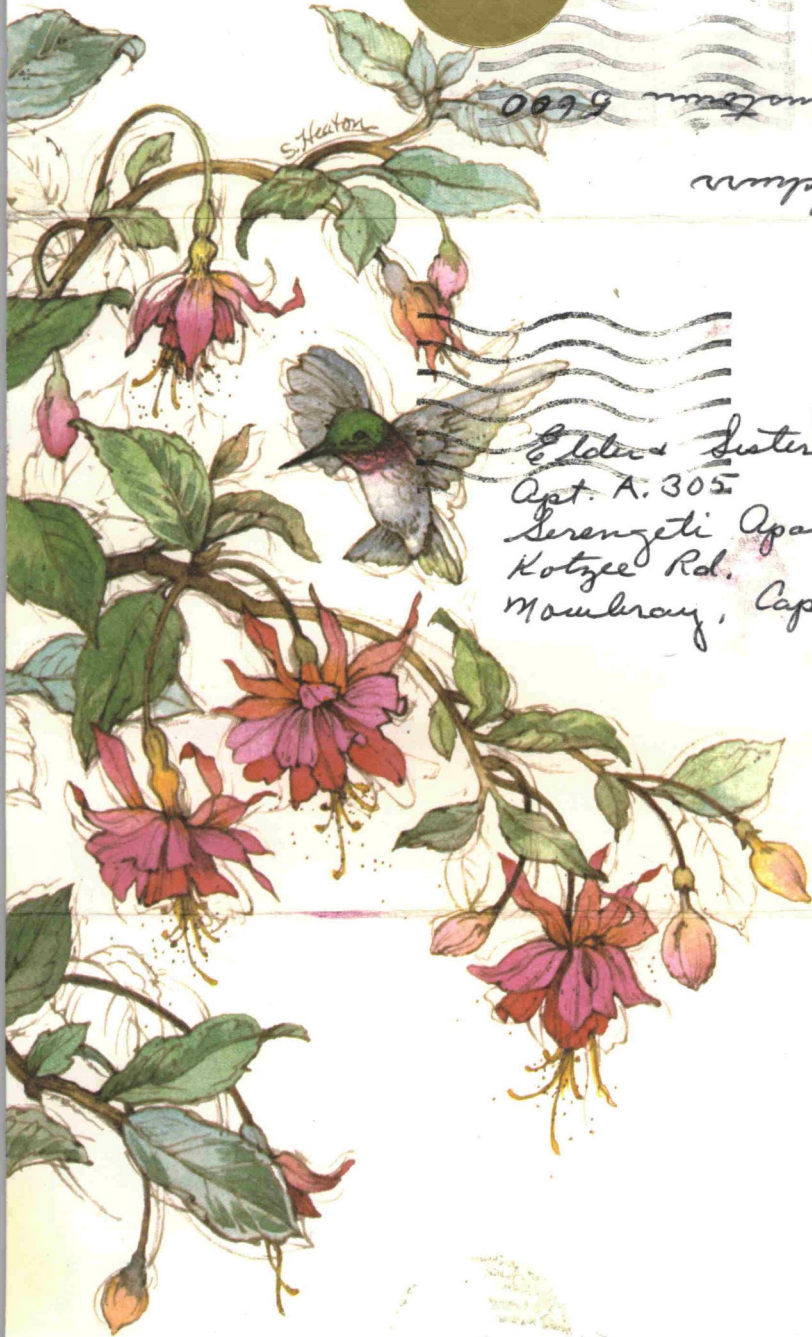 S. Heaton
5600
Elder & Sister
Apt. A. 305
Serengeti Apa
Kotzee Rd.
Mowbray, Cap